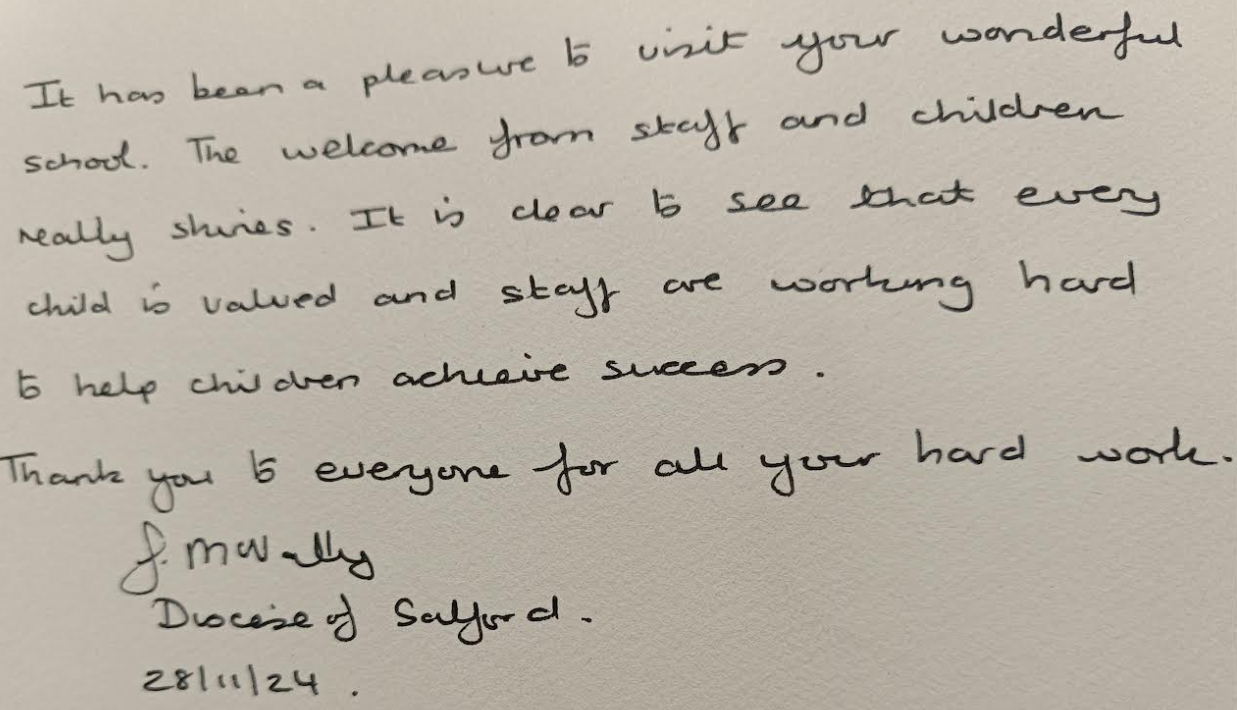 It has been a pleasure to visit your wonderful
school. The welcome from staff and children
really shines. It is clear to see that every
child is valued and staff are working hard
to help children achieve success.
Thank you to everyone for all your hard work.
Diocese of Salford.
28/11/24.